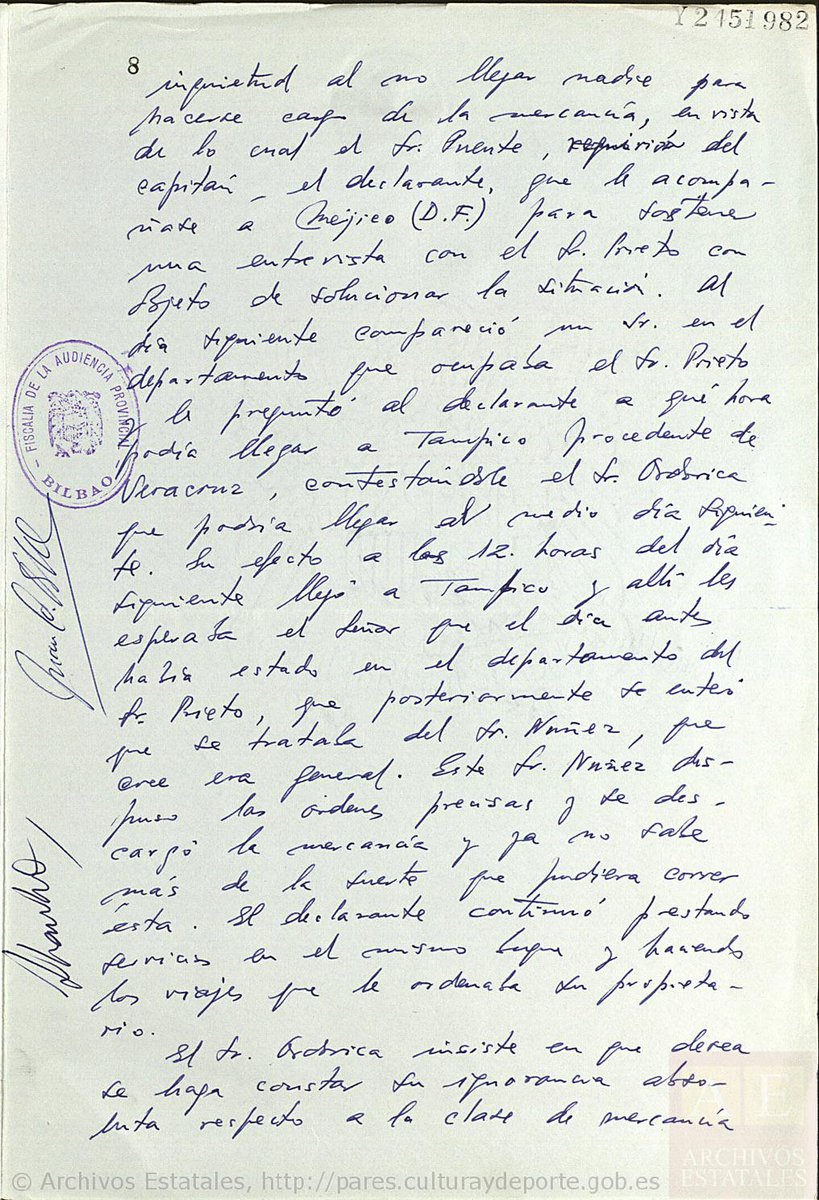 Y2451982
8
inquietud al no llegar nadie para
hacerse cargo de la mercancía, en vista
de lo cual el Sr. Puente, requirió del
capitán, el declarante, que le acompa-
ñase a Méjico (D.F.) para sostener
una entrevista con el Sr. Prieto con
objeto de solucionar la situación. Al
día siguiente compareció un Sr. en el
departamento que ocupaba el Sr. Prieto
y le preguntó al declarante a qué hora
podía llegar a Tampico procedente de
Veracruz, contestándole el Sr. Ordorica
que podría llegar al medio día siguien-
te. En efecto a las 12 horas del día
siguiente llegó a Tampico y allí les
esperaba el señor que el día antes
había estado en el departamento del
Sr. Prieto, que posteriormente se enteró
que se trataba del Sr. Nuñez, que
cree era general. Este Sr. Nuñez dis-
puso las órdenes precisas y se des-
cargó la mercancía y ya no sabe
más de la suerte que pudiera correr
ésta. El declarante continuó prestando
servicios en el mismo buque y haciendo
los viajes que le ordenaba su propieta-
rio.
El Sr. Ordorica insiste en que desea
se haga constar su ignorancia abso-
luta respecto a la clase de mercancía
FISCALIA DE LA AUDIENCIA PROVINCIAL
- BILBAO -
AE
ARCHIVOS
ESTATALES
© Archivos Estatales, http://pares.culturaydeporte.gob.es